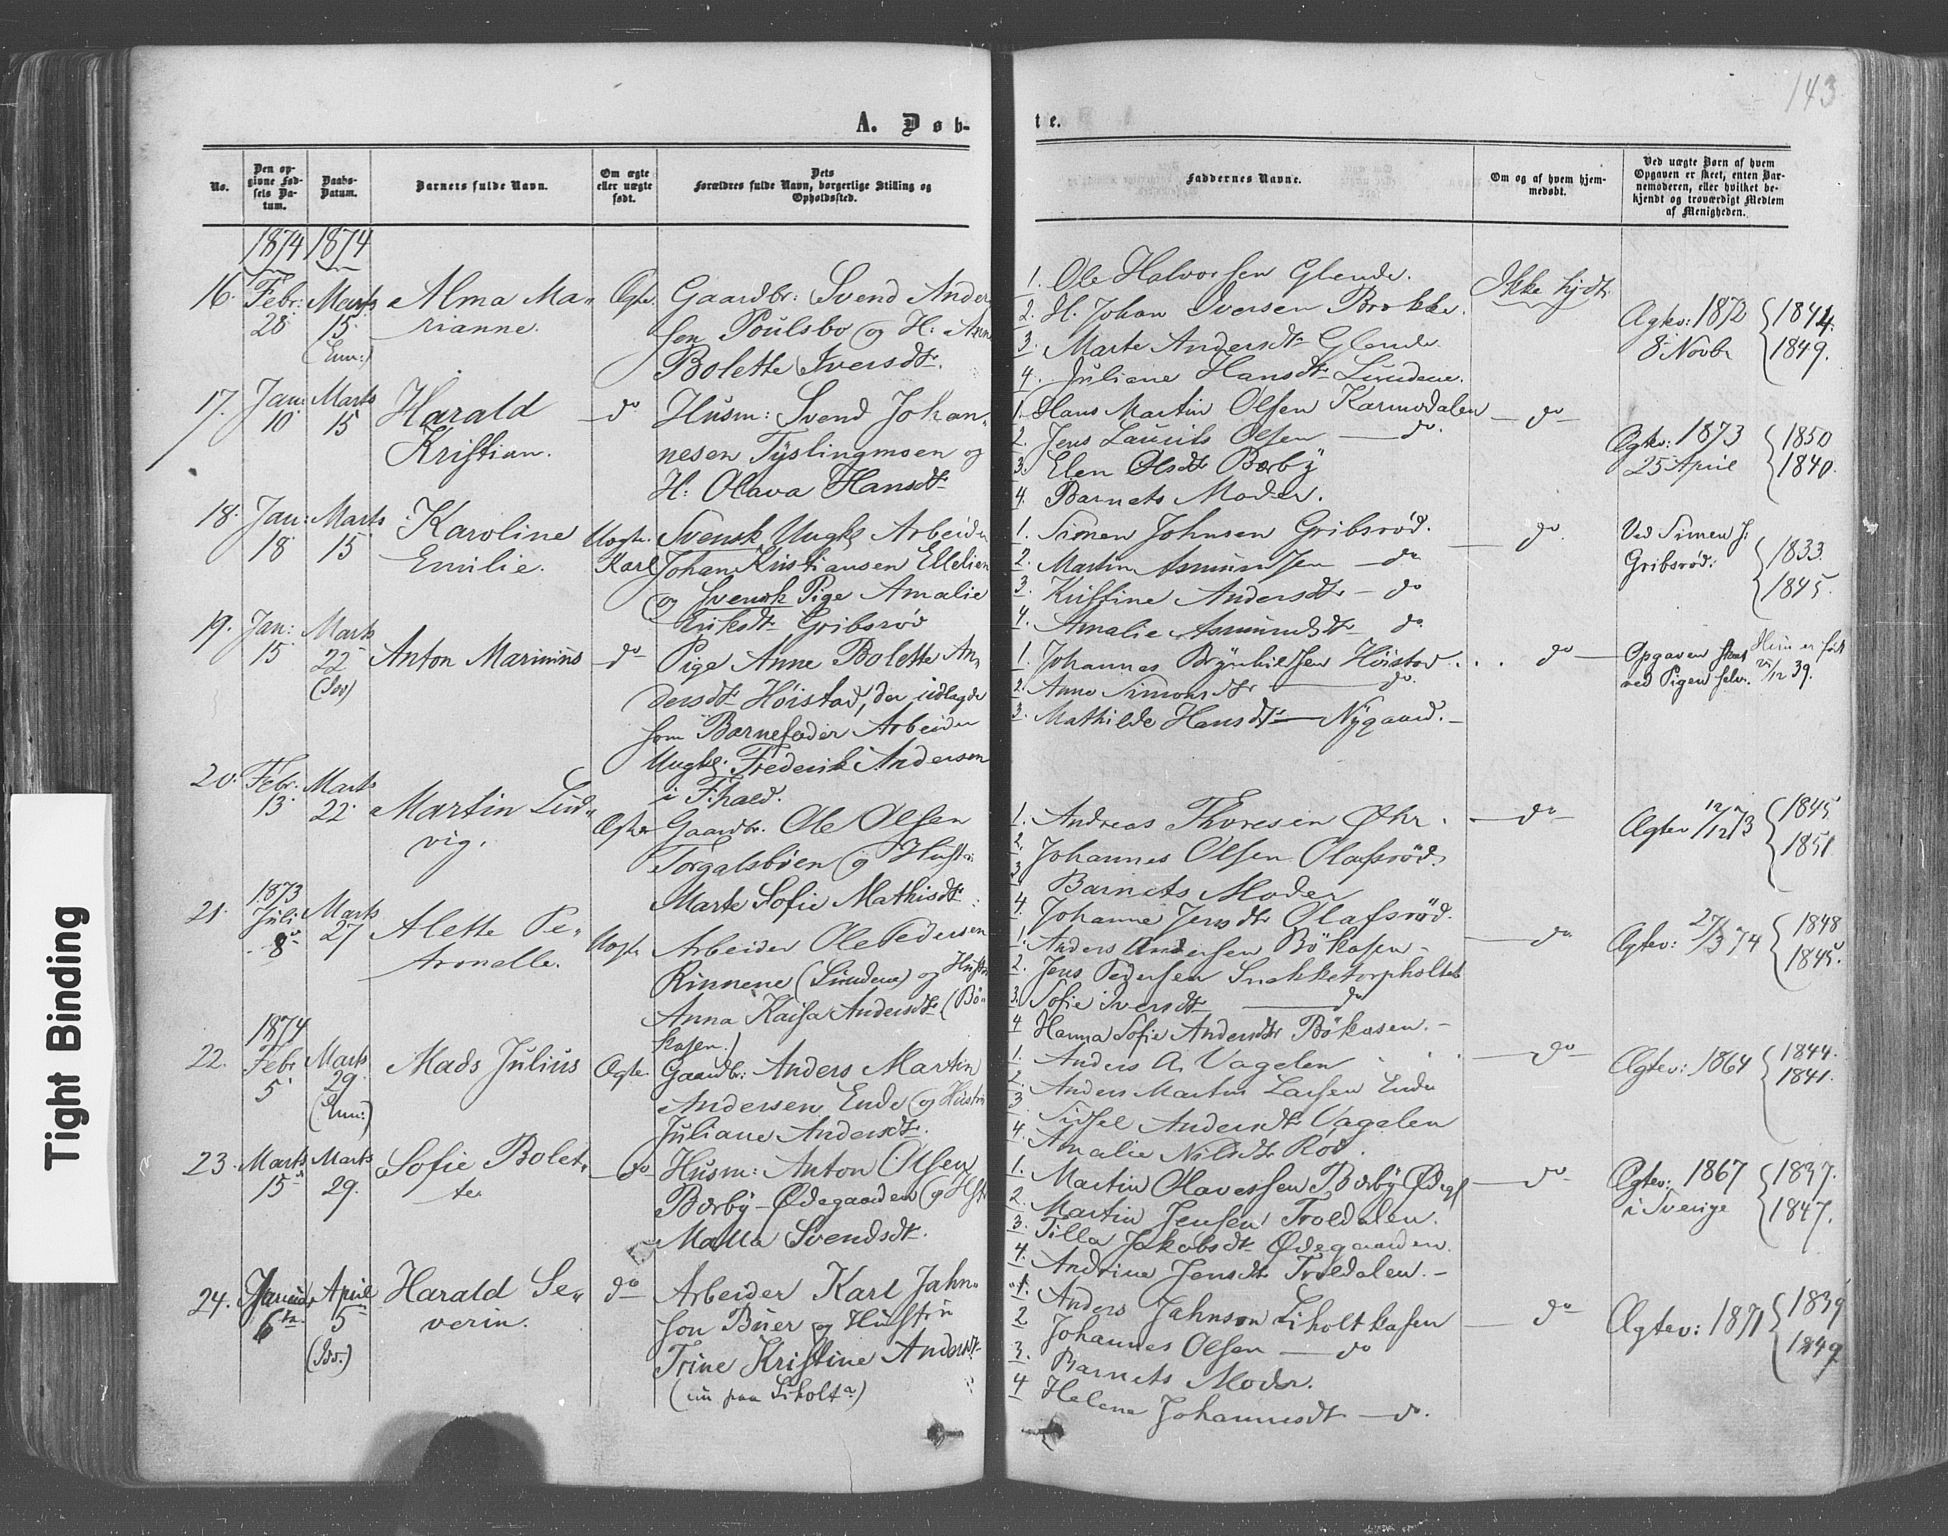 143
A. Døb-
te.
No.
Den op-
givne Fød-
sels Da-
tum.
Daabs-
Datum.
Barnets fulde Navn.
Om ægte
eller uægte
født.
Dets
Forældres fulde Navn, borgerlige Stilling og
Opholdssted.
Faddernes Navne.
Om og af hvem hjem-
medøbt.
Ved uægte Børn af hvem
Opgaven er skeet, enten Bar-
nemoderen, eller hvilket be-
kjendt og troværdigt Medlem
af Menigheden.
1874 1874
16. Febr: 28 Marts 15. (Enn:)
Alma Ma-
rianne.
Ægte.
Gaardbr: Svend Ander
sen Poulsbo og H: Anne
Bolette Iversdt.
1. Ole Halvorsen Glende.
2. H. Johan Iversen Brekke.
3. Marte Andersdt Glende
4. Juliane Hansdt Lundene.
Ikke hjdt.
Ægtev: 1872
8 Novbr
1844.
1849.
17. Jan: 10 Marts 15
Harald
Kristian.
do
Husm: Svend Johan-
nesen Tyslingmoen og
H: Olava Hansdt
1. Hans Martin Olsen Karmodalen
2. Jens Laurits Olsen — do.
3. Elen Olsdt Børby
4. Barnets Moder.
do
Ægtev: 1873
25 April
1850
1840.
18. Jan: 18 Marts 15
Karoline
Emilie.
Uægte.
Svensk Ungk Arbeider
Karl Johan Kristiansen Ellelien
og Svensk Pige Amalie
Eriksdt Gribsrød
1. Simen Johnsen Gribsrød.
2. Martin Asmundsen — do
3. Kristine Andersdt — do
4. Amalie Asmundsdt — do
do.
Ved Simen J:
Gribsrød:
1833
1845.
19. Jan: 15 Marts 22 (Idd)
Anton Marinius
do
Pige Anne Bolette An-
dersdt Høistad, der udlagde
som Barnefader Arbeider
Ungk: Frederik Andersen
i F:hald.
1. Johannes Brynhilsen Høistad.
2. Anne Simonsdt — do.
3. Mathilde Hansdt — Nygaard. —
do
Opgaven skeet Hun er født
ved Pigen selv. 21/12 39.
20. Febr. 13. Marts 22.
Martin Lud-
vig.
Ægte
Gaardbr. Ole Olsen
Torgalsbøen og Hustr:
Marte Sofie Mathisdt
1. Andreas Thoresen Øhr.
2. Johannes Olsen Olafsrød.
3. Barnets Moder
4. Johanne Jensdt Olafsrød.
do
Ægtev 12/12 73
1845
1851
21. 1873 Juli 8 Marts 27
Alette Pe-
tronelle.
Uægte
Arbeider Ole Pedersen
Rinnene (Lundene) og Hustru
Anna Kaisa Andersdt (Bø-
kasen.)
1. Anders Andersen Bökasen —
2. Jens Pedersen Snekketorpholtet
3. Sofie Iversdt — do
4. Hanna Sofie Andersdt Bökasen. —
do
Ægtev: 27/3 74
1848
1845.
22. 1874 Febr 5 Marts 29. (Enn:)
Mads Julius
Ægte.
Gaardbr: Anders Martin
Andersen Ende og Hustru
Juliane Andersdt.
1. Anders A. Vagelen
2. Anders Martin Larsen Ende
3. Sissel Andersdt Vagelen
4. Amalie Nilsdt Rød.
do
Ægtev: 1864
1844.
1841.
23. Marts 15 Marts 29.
Sofie Bolet-
te
do
Husm: Anton Olsen
Børby-Ødegaarden og Hstr
Malla Svendsdt.
1. Martin Olavessen Børby Ødegd
2. Martin Jensen Troldalen.
3. Tilla Jakobsdt Ødegaarden
4. Andrine Jensdt Troldalen. —
do
Ægtev: 1867
i Sverige
1837.
1847.
24. Januar 6te April 5 (Idd.)
Harald Se-
verin.
do
Arbeider Karl Jahn-
son Buer og Hustru
Trine Kristine Andersdt
(nu paa Liholt)
1. Anders Jahnson Liholtkasen
2 Johannes Olsen — do
3. Barnets Moder.
4 Helene Johannesdt — do.
do
Ægtev: 1871
1839
1849
Tight Binding